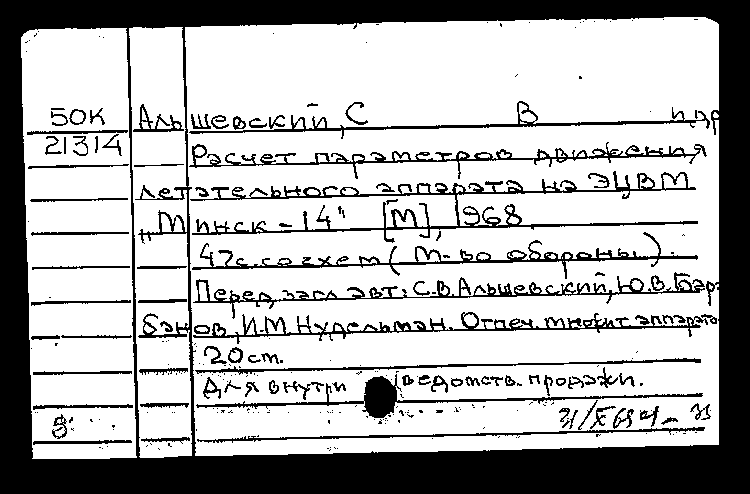 50К Альшевский, С В и др
21314 Расчет параметров движения
летательного аппарата на ЭЦВМ
„Минск-14" [М], 1968
47с. со схем (М-во обороны).
Перед загл авт: С.В. Альшевский, Ю.В. Бара
банов, И.М. Нудельман. Отпеч. множит аппарато
20 ст.
Для внутриведомств. продажи.